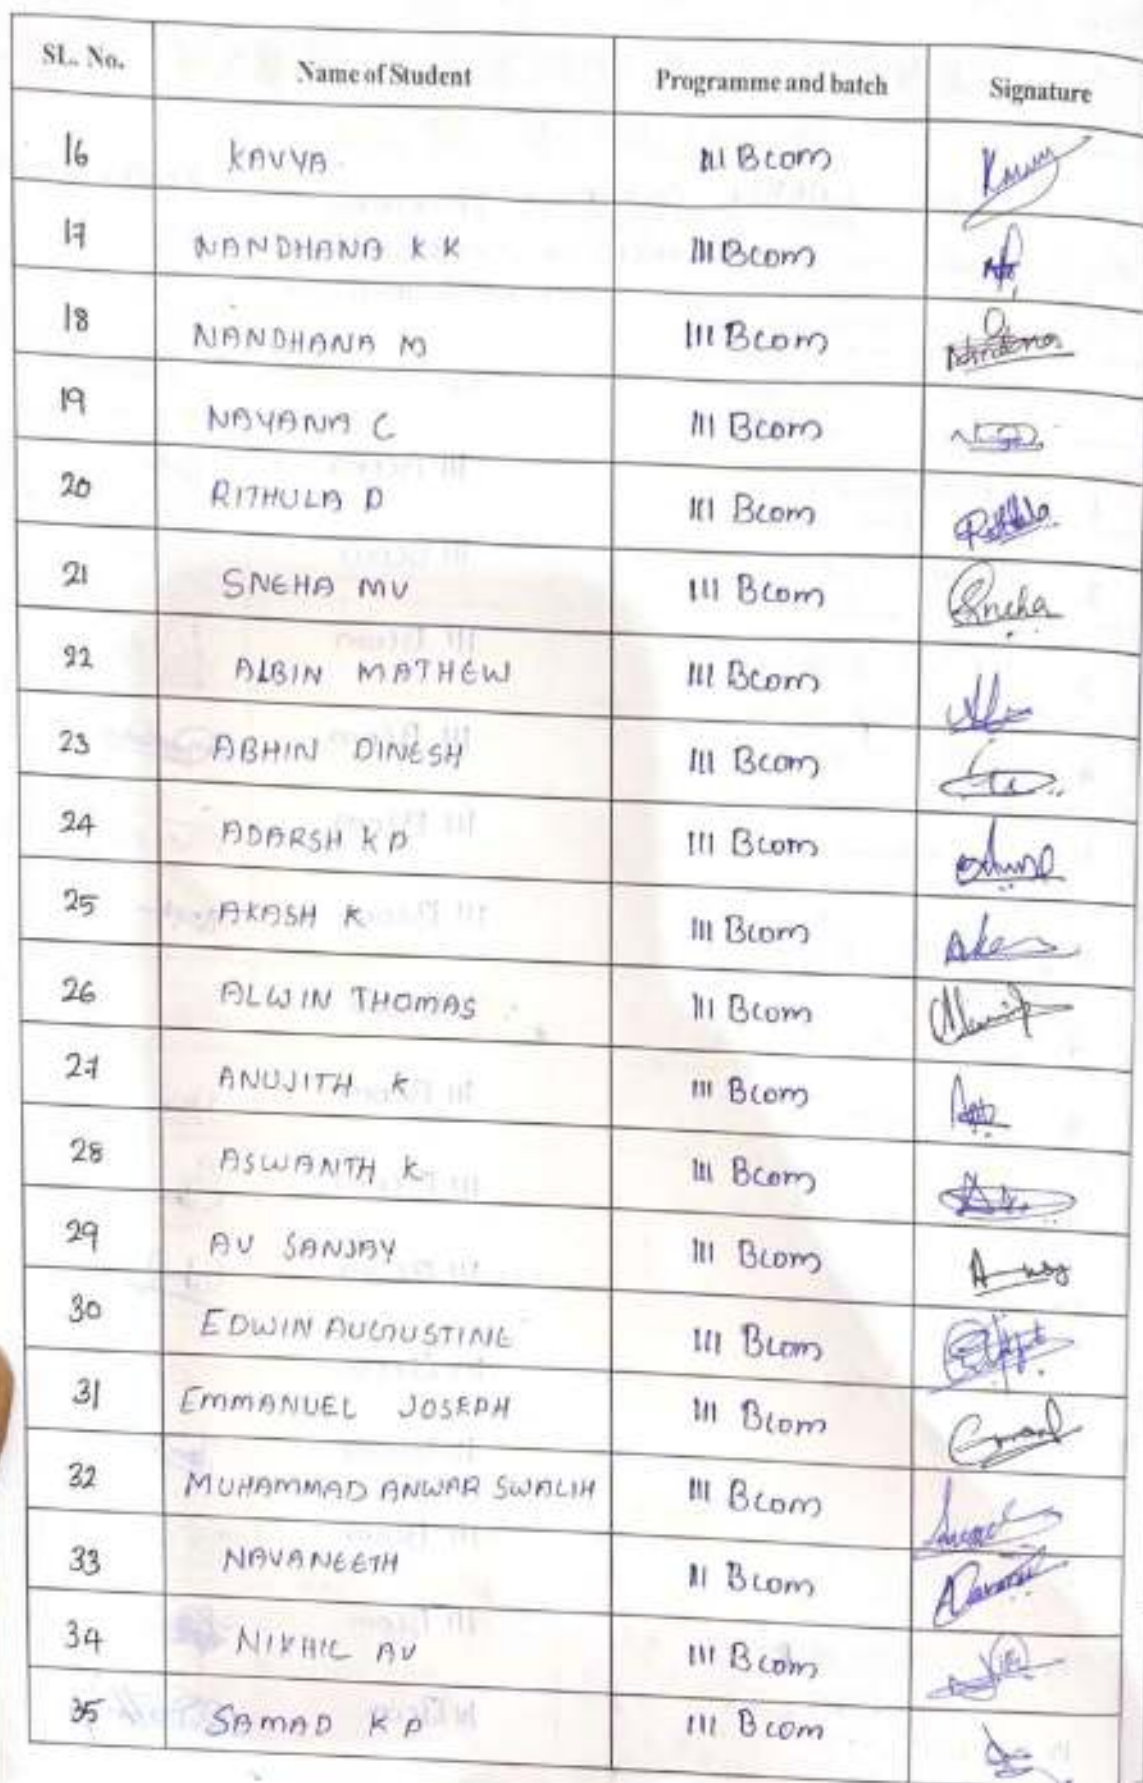 SL. No. Name of Student Programme and batch Signature
16 KAVYA III Bcom
17 NANDHANA K K III Bcom
18 NANDHANA M III Bcom Nandana
19 NAYANA C III Bcom
20 RITHULA D III Bcom
21 SNEHA MV III Bcom Sneha
22 ALBIN MATHEW III Bcom
23 ABHIN DINESH III Bcom
24 ADARSH K P III Bcom
25 AKASH K III Bcom
26 ALWIN THOMAS III Bcom
27 ANUJITH K III Bcom
28 ASWANTH K III Bcom
29 AV SANJAY III Bcom
30 EDWIN AUGUSTINE III Bcom
31 EMMANUEL JOSEPH III Bcom
32 MUHAMMAD ANWAR SWALIH III Bcom
33 NAVANEETH III Bcom
34 NIKHIL AV III Bcom
35 SAMAD K P III Bcom